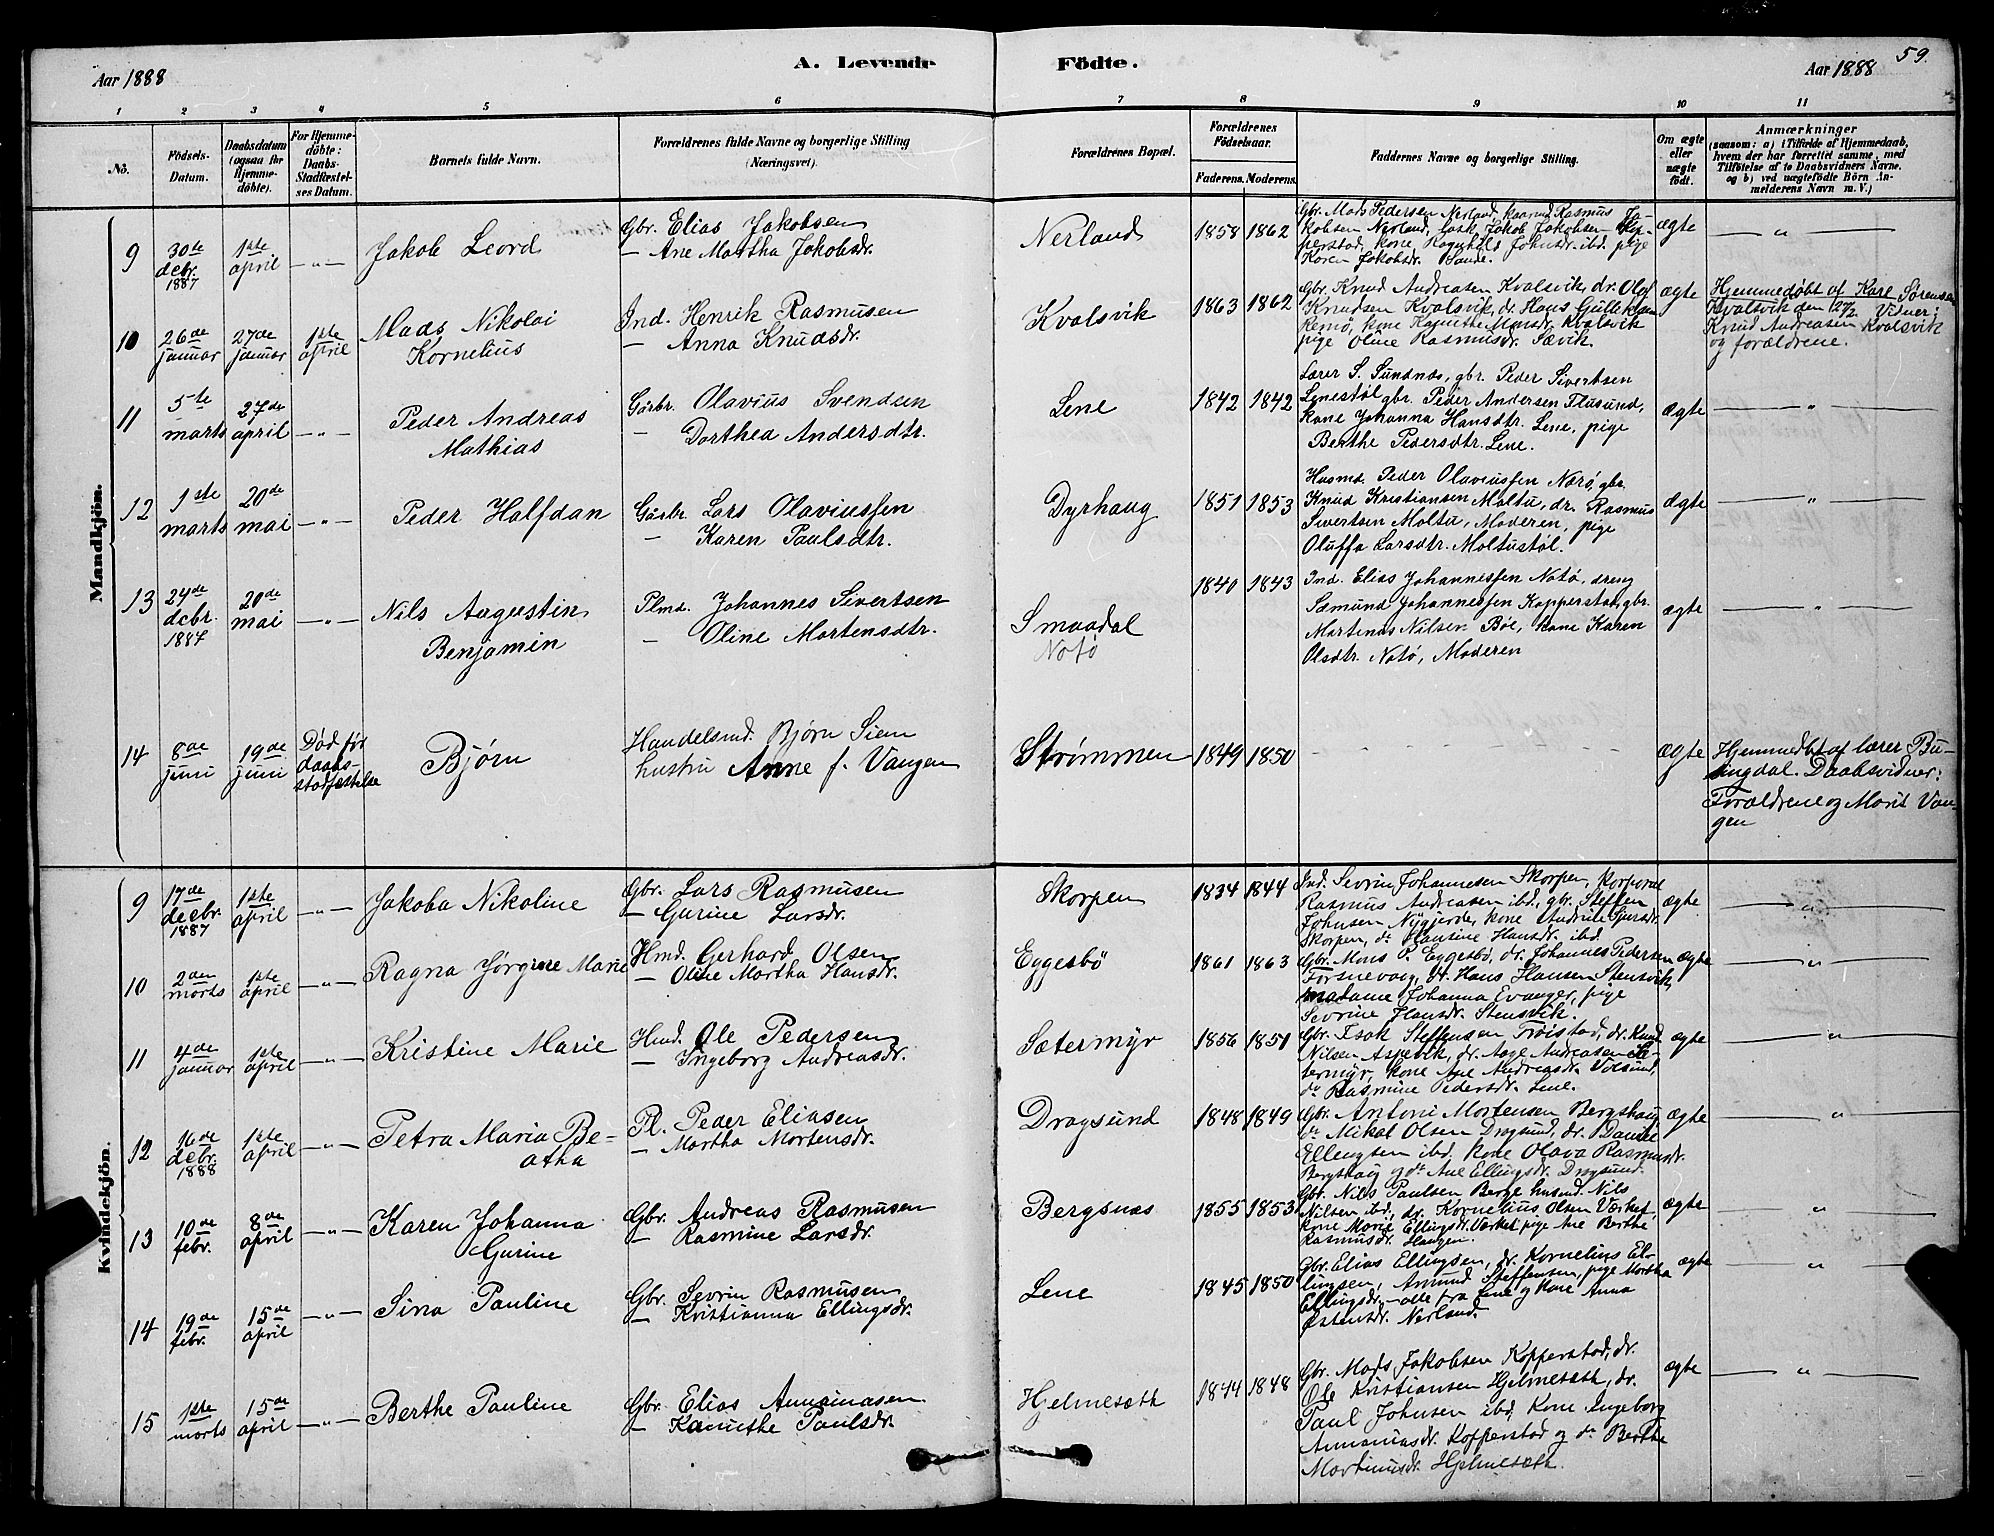 59.
Aar 1888
A. Levende Födte.
Aar 1888
1 2 3 4 5 6 7 8 9 10 11
No.
Födsels-Datum.
Daabsdatum (ogsaa for Hjemme-döbte).
For Hjemme-döbte: Daabs-Stadfæstel-ses Datum.
Barnets fulde Navn.
Forældrenes fulde Navne og borgerlige Stilling (Næringsvei).
Forældrenes Bopæl.
Forældrenes Födselsaar.
Faderens. Moderens.
Faddernes Navne og borgerlige Stilling.
Om ægte eller uægte födt.
Anmærkninger
(saasom: a) i Tilfælde af Hjemmedaab,
hvem der har forrettet samme, med
Tilföielse af to Daabsvidners Navne.
og b) ved uægtefödte Börn An-
melderens Navn m. V.)
Mandkjön.
9 30te debr. 1887 1ste april —„— Jakob Leord
Gbr. Elias Jakobsen
— Ane Martha Jakobsdr.
Nerland 1858 1862
Gbr. Mads Pedersen Nerland, kaarmd Rasmus Ja-
kobsen Nerland, Jakob Jakobsen Kop-
perstad, kone Ragnhild Johnsdr. ibd. pige
Karen Jakobsdr. Sande.
ægte — „ —
10 26de januar 27de januar 1ste april Mads Nikolai
Kornelius
Ind. Henrik Rasmusen
— Anna Knudsdr.
Kvalsvik 1863 1862
Gbr. Knud Andreasen Kvalsvik, dr. Olaf
Knudsen Kvalsvik, dr. Hans
Remö, kone Monsdr. Kvalsvik
pige Oline Rasmusdr. Sævik.
ægte
Hjemmedøbt af Karl Sørensen
Kvalsvik den 27/2 Vidner:
Knud Andreasen Kvalsvik
og forældrene.
11 5te marts 27de april —„— Peder Andreas
Mathias
Gårbr. Olavius Svendsen
— Dorthea Andersdtr.
Lene 1842 1842
Lærer S. Sundnæs, gbr. Peder Sivertsen
Lenestøl, gbr. Peder Andersen Flusund,
Kone Johanna Hansdtr. Lene, pige
Berthe Pedersdtr. Lene.
ægte — „ —
12 1ste marts 20de mai —„— Peder Halfdan
Gårbr. Lars Olaviussen
— Karen Paulsdtr.
Dyrhaug 1851 1853
Husmd. Peder Olaviussen Nærö, gbr.
Knud Kristiansen Moltu, dr. Rasmus
Sivertsen Moltu, Moderen, pige
Oluffa Larsdtr. Moltustøl.
ægte — „ —
13 24de debr. 1887 20de mai —„— Nils Augustin
Benjamin
Plmd. Johannes Sivertsen
— Oline Mortensdtr.
Smaadal
Notö
1840 1843
Ind. Elias Johannessen Notø, dreng
Sæmund Johannessen Kopperstad, gbr.
Martinus Nilsen Böe, kone Karen
Olsdtr. Notø, Moderen
ægte — „ —
14 8de juni 19de juni Død før daabs-stadfæstelse Bjørn
Handelsmd. Bjørn Siem
hustru Anne f. Vangen
Strømmen 1849 1850
ægte
Hjemmedbt af lærer Bu-
singdal. Daabsvidner:
Forældrene og Marit Van-
gen
Kvindekjön.
9 17de decbr. 1887 1ste april —„— Jakoba Nikoline
Gbr. Lars Rasmusen
— Gurine Larsdr.
Skorpen 1834 1844
Ind. Sevrin Johannesen Skorpen, korporal
Rasmus Andreasen ibd., gbr. Steffen
Johnsen Nygjerde, kone
Skorpen, do Hansine Hansdr. ibd.
ægte — „ —
10 2den marts 1ste april —„— Ragna Jørgine Marie
Hmd. Gerhard Olsen
— Oline Martha Hansdr.
Eggesbö 1861 1863
Gbr. Mons P. Eggesbö, dr. Johannes Pedersen
Fosnevaag, dr. Hans Hansen Stensvik,
madame Johanna Evanger, pige
Sevrine Hansdr. Stensvik.
ægte — „ —
11 4de januar 1ste april —„— Kristine Marie
Hmd. Ole Pedersen
— Ingeborg Andreasdr.
Sætermyr 1856 1851
Gbr. Isak Steffensen Frøistad, dr. Knud
Nilsen Aspevik, dr. Aage Andreasen Sæ-
termyr, kone Ane Andreasdr. Volsund,
do Rasmine Pedersdr. Lene.
ægte „
12 16de debr. 1888 1ste april —„— Petra Maria Be-
atha
Pl. Peder Eliasen
— Martha Mortensdr.
Dragsund 1848 1849
Gbr. Antoni Mortensen Bergshaug,
do Mikal Olsen Dragsund, dr. Daniel
Ellingsen ibd. kone Olava Rasmusdr.
Bergshaug og do Ane Ellingsdr. Dragsund.
ægte — „
13 10de febr. 8de april —„— Karen Johanna
Gurine
Gbr. Andreas Rasmusen
— Rasmine Larsdr.
Bergsnæs 1855 1853
Gbr. Nils Paulsen Berge husmd. Nils
Nilsen ibd., dr. Kornelius Olsen Værket,
kone Marie Ellingsdr. Værket, pige Ane Berthe
Rasmusdr. Haugen.
ægte „
14 19de febr. 15de april —„— Sina Pauline
Gbr. Sevrin Rasmusen
— Kristianna Ellingsdr.
Lene 1845 1850
Gbr. Elias Ellingsen, dr. Kornelius El-
lingsen, Amund Steffensen, pige Martha
Ellingsdr. — alle fra Lene og kone Anna
Østensdr. Nerland.
ægte „ —
15 1ste marts 15de april —„— Berthe Pauline
Gbr. Elias Annaniasen
— Kanuthe Paulsdr.
Hjelmesæth 1844 1848
Gbr. Mads Jakobsen Kopperstad, dr.
Ole Kristiansen Hjelmesæth, dr.
Paul Johnsen ibd, Kone Ingeborg
Annaniasdr. Kopperstad og do Berthe
Martinusdr. Hjelmesæth.
ægte — „ —